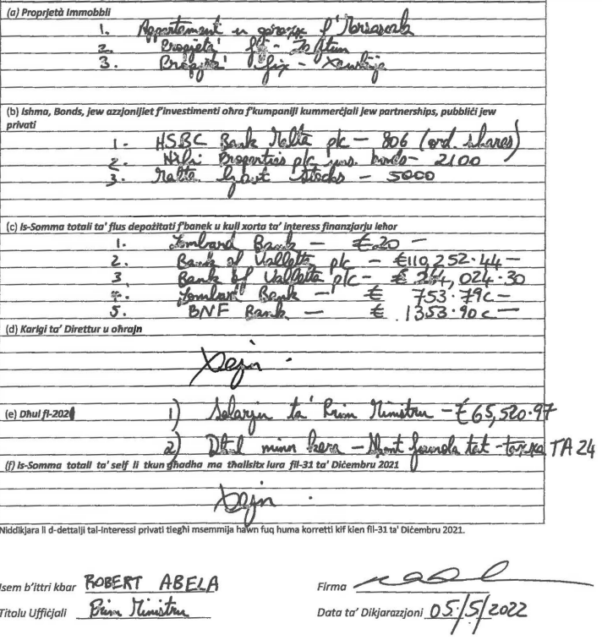 (a) Proprjetà Immobbli
1. Appartament u garaxx f'Marsascala
2. Proprjetà fiż-Żejtun
3. fix-Xewkija
(b) Ishma, Bonds, jew azzjonijiet f'investimenti oħra f'kumpaniji kummerċjali jew partnerships, pubbliċi jew
privati
1. HSBC Bank Malta plc – 806 (ord. shares)
2. Hili Properties plc bonds – 2100
3. Malta Govt Stocks – 5000
(c) Is-Somma totali ta' flus depożitati f'banek u kull xorta ta' interess finanzjarju ieħor
1. Lombard Bank – €20 –
2. Bank of Valletta plc – €110,252.44 –
3 Bank of Valletta plc – € 024.30
4. Lombard Bank – € 753.79c –
5. BNF Bank – € 1353.90c –
(d) Karigi ta' Direttur u oħrajn
Xejn.
(e) Dħul fl-2021 1) Salarju ta' Prim Ministru – €65,520.97
2) Dħul minn kera – taxxa TA 24
(f) Is-Somma totali ta' self li tkun għadha ma tħallsitx lura fil-31 ta' Diċembru 2021
Xejn.
Niddikjara li d-dettalji tal-interessi privati tiegħi msemmija hawn fuq huma korretti kif kien fil-31 ta' Diċembru 2021.
Isem b'ittri kbar ROBERT ABELA Firma
Titolu Uffiċjali Prim Ministru Data ta' Dikjarazzjoni 05/5/2022